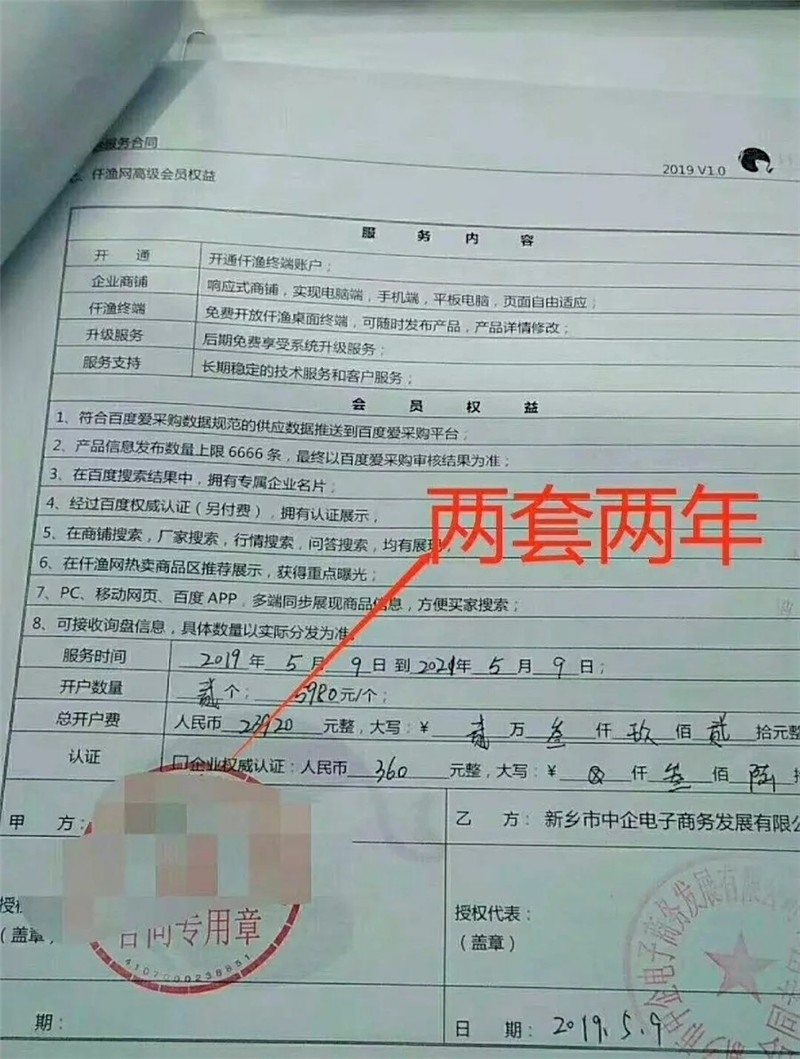 服务合同
2019 V1.0
仟渔网高级会员权益
服 务 内 容
开 通 开通仟渔终端账户；
企业商铺 响应式商铺，实现电脑端，手机端，平板电脑，页面自由适应；
仟渔终端 免费开放仟渔桌面终端，可随时发布产品，产品详情修改；
升级服务 后期免费享受系统升级服务；
服务支持 长期稳定的技术服务和客户服务；
会 员 权 益
1、符合百度爱采购数据规范的供应数据推送到百度爱采购平台；
2、产品信息发布数量上限 6666 条，最终以百度爱采购审核结果为准；
3、在百度搜索结果中，拥有专属企业名片；
4、经过百度权威认证（另付费），拥有认证展示，
5、在商铺搜索，厂家搜索，行情搜索，问答搜索，均有展现，
两套两年
6、在仟渔网热卖商品区推荐展示，获得重点曝光；
7、PC、移动网页、百度 APP，多端同步展现商品信息，方便买家搜索；
8、可接收询盘信息，具体数量以实际分发为准。
服务时间 2019 年 5 月 9 日 到 2021年 5 月 9 日；
开户数量 贰 个； 5980 元/个；
总开户费 人民币 23920 元整，大写：￥ 贰 万 叁 仟 玖 佰 贰 拾元整
认证 企业权威认证：人民币 360 元整，大写：￥ 仟 叁 佰 陆
甲 方：
乙 方： 新乡市中企电子商务发展有限公
授权代表：
（盖章）
（盖章）
合同专用章
4107000238851
中企电子商务发展有限
期：
日 期： 2019.5.9